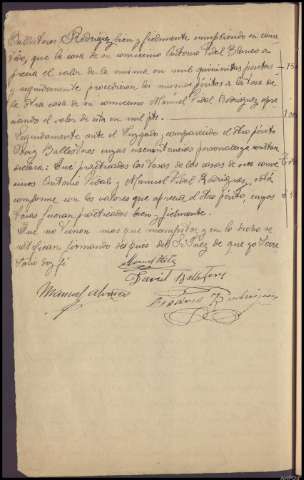 Ballesteros Rodríguez bien y fielmente cumpliendo en como
que la casa de su convecino Antonio Vidal Blanco a-
precia el valor de la misma en mil quinientas pesetas
y seguidamente procedieron los mismos peritos a la tasa de
la otra casa de su convecino Manuel Vidal Rodríguez apre
ciando el valor de esta en mil pts.
Seguidamente ante el Juzgado, comparecido el otro perito
Ballesteros cuyas circunstancias personales constan
declara: Que practicadas las tasas de las casas de sus conve
cinos Antonio Vidal y Manuel Vidal Rodríguez, está
conforme con los valores que aprecia el otro perito, cuyas
tasas fueron practicadas bien y fielmente.
Que no tienen mas que manifestar y en lo dicho se
ratifican, firmando despues del Sr Juez de que yo Secre
tario doy fé
David Ballesteros
Manuel
Rodríguez